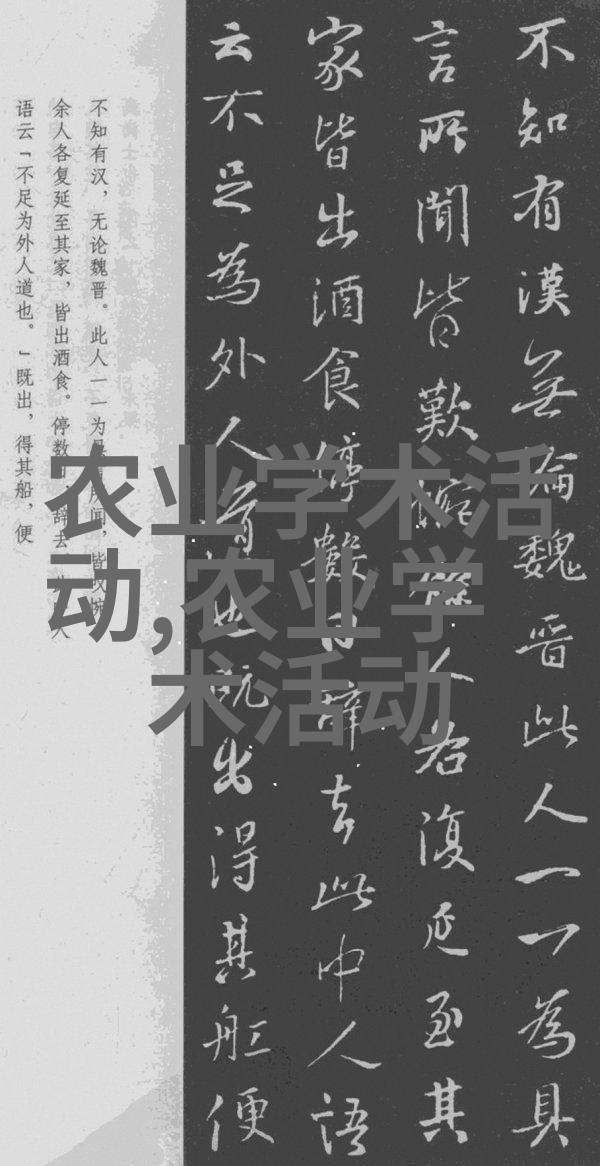 不知有漢無論魏晋此人一一為具
言所聞皆歎惋餘人各復延至其
家皆出酒食停數日辭去此中人語
云不足為外人道也既出得其船便
不知有汉，无论魏晋。此人一一为具言所闻，皆叹惋
余人各复延至其家，皆出酒食。停数日辞去。此中人
语云「不足为外人道也。」既出，得其船，便
农业学术活
动,农业学
术活动